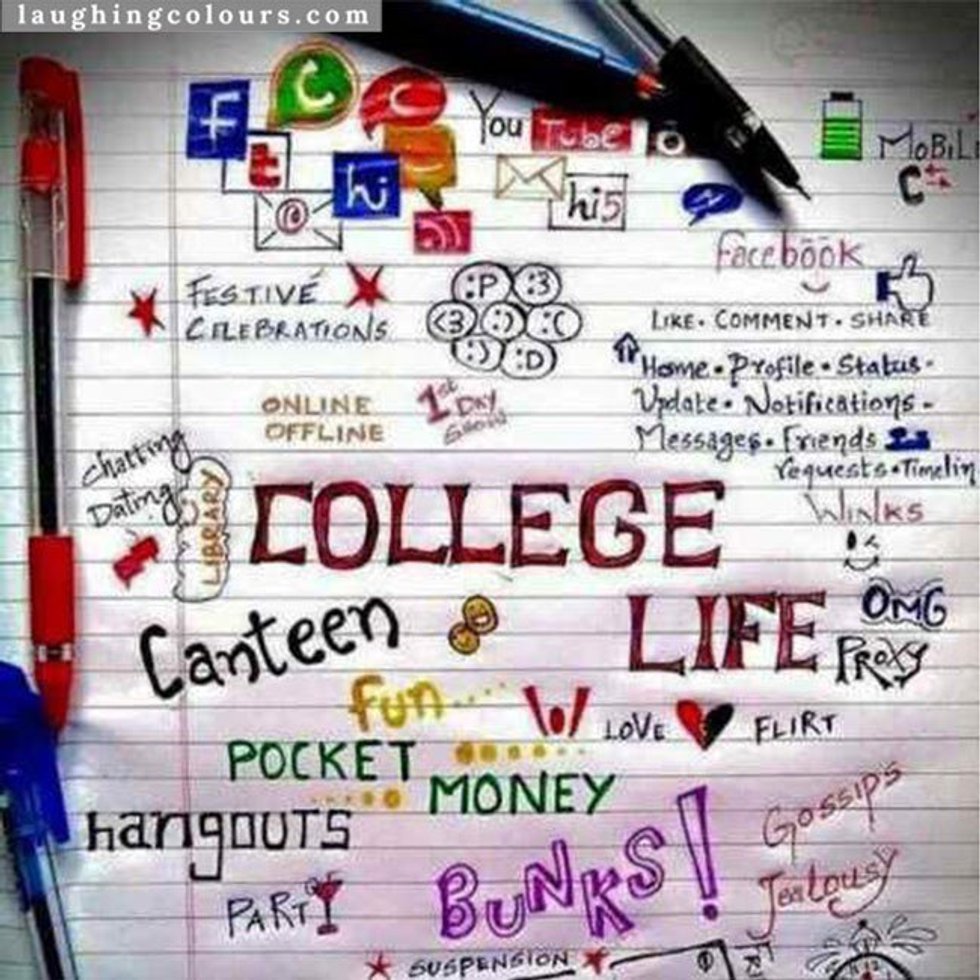 laughingcolours.com
f
C
t
@
hi
You Tube
hi5
MOBIL
facebook
LIKE. COMMENT. SHARE
Home. Profile. Status.
Update. Notifications.
Messages. Friends
requests. Timelin
FESTIVE
CELEBRATIONS
:P :3
<3 :) :(
:) :D
ONLINE
OFFLINE
1st
DAY
SHOW
Chatting
Dating
LIBRARY
COLLEGE
LIFE
WINKS
OMG
PROXY
Canteen
fun....
LOVE
FLIRT
POCKET
MONEY
hangouts
BUNKS!
Gossips
Jealousy
PARTY
SUSPENSION